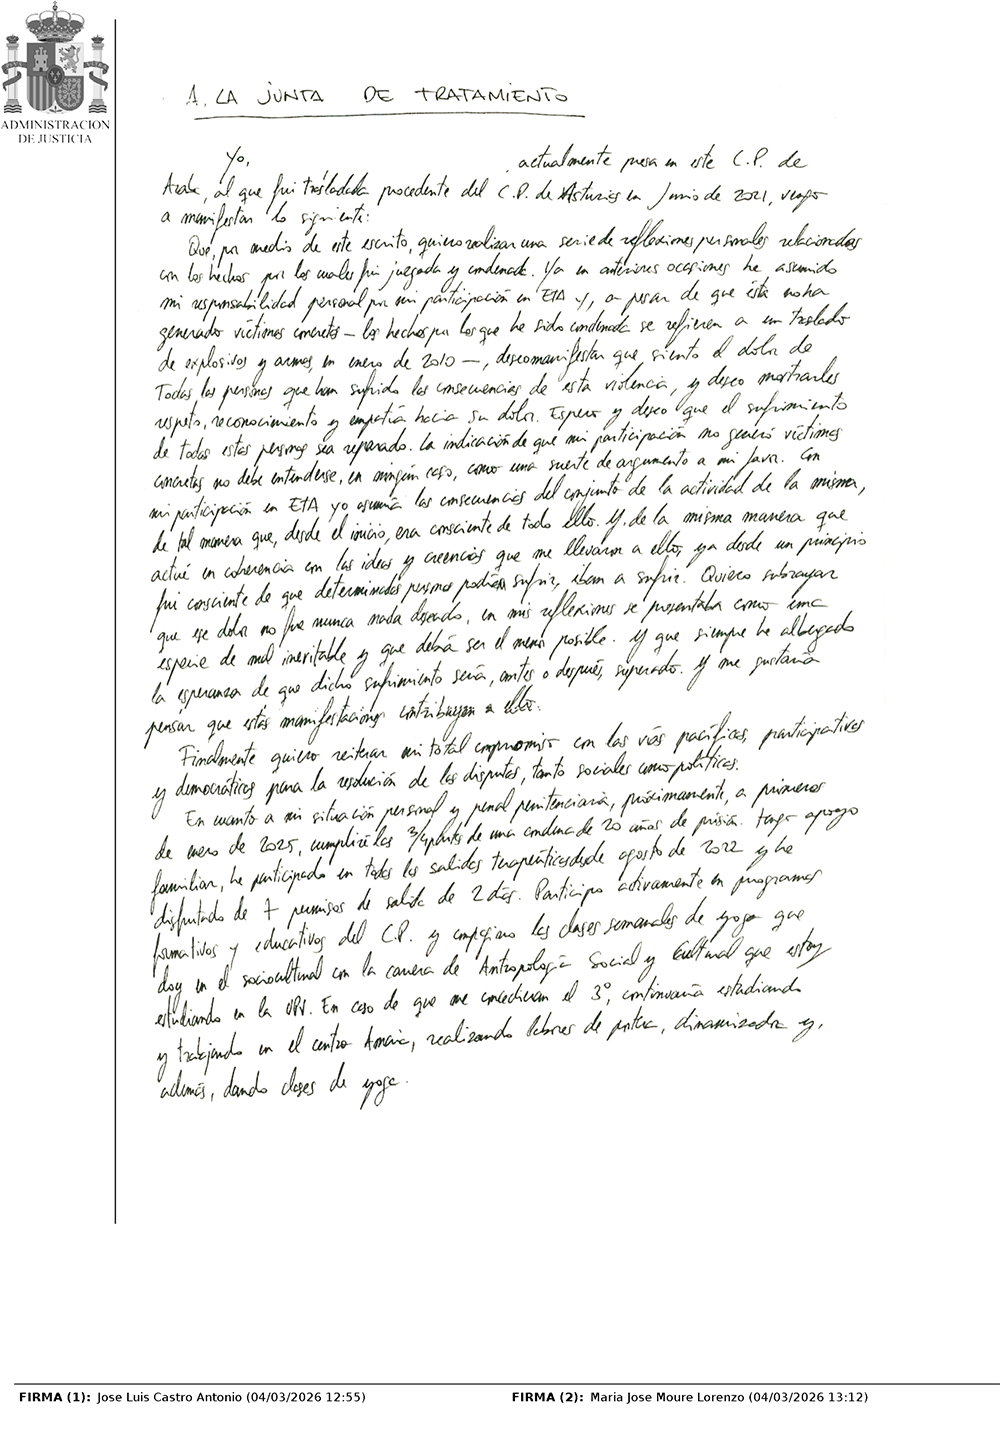 ADMINISTRACION
DE JUSTICIA
A LA JUNTA DE TRATAMIENTO
Yo, actualmente presa en este C.P. de
Araba, al que fui trasladada procedente del C.P. de Asturias en Junio de 2021, vengo
a manifestar lo siguiente:
Que, por medio de este escrito, quiero realizar una serie de reflexiones personales relacionadas
con los hechos por los cuales fui juzgada y condenada. Ya en anteriores ocasiones he asumido
mi responsabilidad personal por mi participación en ETA y, a pesar de que ésta no ha
generado víctimas concretas – los hechos por los que he sido condenada se refieren a un traslado
de explosivos y armas, en enero de 2010 –, deseo manifestar que siento el dolor de
Todas las personas que han sufrido las consecuencias de esta violencia, y deseo mostrarles
respeto, reconocimiento y empatía hacia su dolor. Espero y deseo que el sufrimiento
de todas estas personas sea reparado. La indicación de que mi participación no generó víctimas
concretas no debe entenderse, en ningún caso, como una suerte de argumento a mi favor. Con
mi participación en ETA yo asumía las consecuencias del conjunto de la actividad de la misma,
de tal manera que, desde el inicio, era consciente de todo ello. Y, de la misma manera que
actué en coherencia con las ideas y creencias que me llevaron a ello, ya desde un principio
fui consciente de que determinadas personas podrían sufrir, iban a sufrir. Quiero subrayar
que ese dolor no fue nunca nada deseado, en mis reflexiones se presentaba como una
especie de mal inevitable y que debía ser el menor posible. Y que siempre he albergado
la esperanza de que dicho sufrimiento sería, antes o después, superado. Y me gustaría
pensar que estas manifestaciones contribuyan a ello.
Finalmente quiero reiterar mi total compromiso con las vías pacíficas, participativas
y democráticas para la resolución de las disputas, tanto sociales como políticas.
En cuanto a mi situación personal y penal penitenciaria, próximamente, a primeros
de enero de 2025, cumpliré las 3/4 partes de una condena de 20 años de prisión. Tengo apoyo
familiar, he participado en todas las salidas terapéuticas desde agosto de 2022 y he
disfrutado de 7 permisos de salida de 2 días. Participo activamente en programas
formativos y educativos del C.P. y compagino las clases semanales de yoga que
doy en el sociocultural con la carrera de Antropología Social y Cultural que estoy
estudiando en la UPV. En caso de que me concedieran el 3º, continuaría estudiando
y trabajando en el centro Amaia, realizando labores de portera, dinamizadora y,
además, dando clases de yoga.
FIRMA (1): Jose Luis Castro Antonio (04/03/2026 12:55) FIRMA (2): Maria Jose Moure Lorenzo (04/03/2026 13:12)